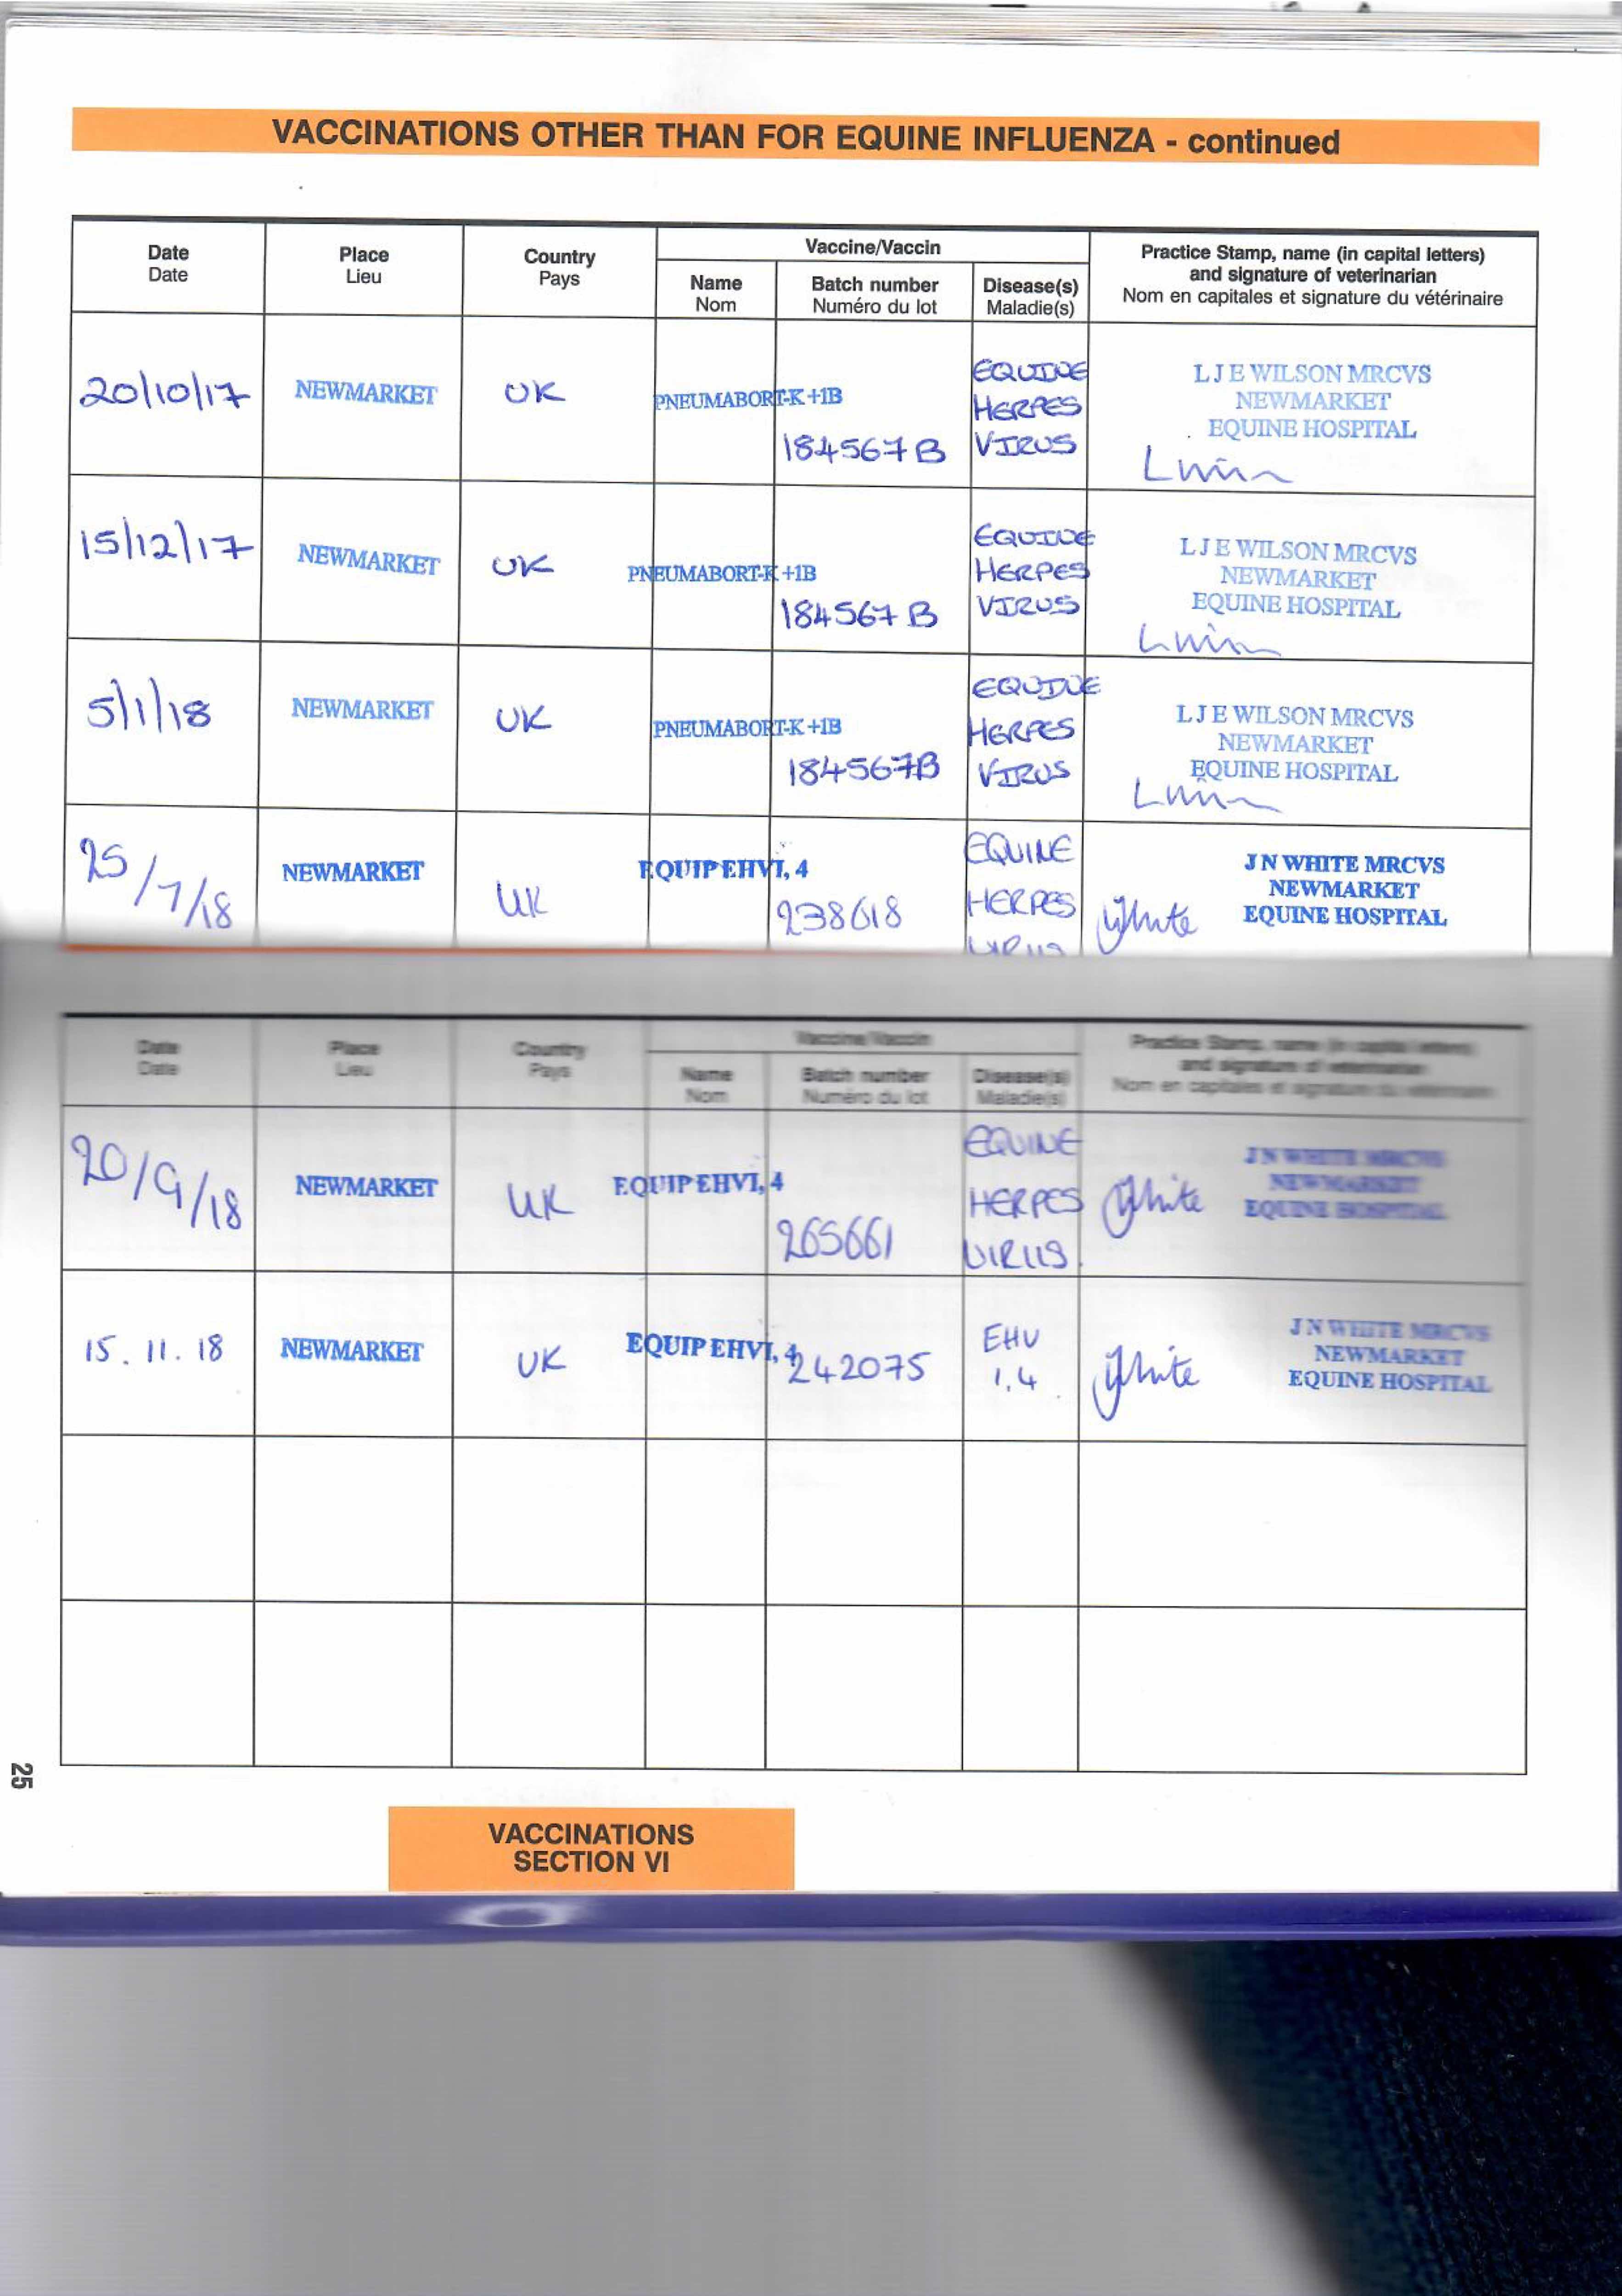 VACCINATIONS OTHER THAN FOR EQUINE INFLUENZA - continued
Date
Date
Place
Lieu
Country
Pays
Vaccine/Vaccin
Name
Nom
Batch number
Numéro du lot
Disease(s)
Maladie(s)
Practice Stamp, name (in capital letters)
and signature of veterinarian
Nom en capitales et signature du vétérinaire
20/10/17
NEWMARKET
UK
PNEUMABORT-K +1B
184567B
EQUINE
HERPES
VIRUS
L J E WILSON MRCVS
NEWMARKET
EQUINE HOSPITAL
15/12/17
NEWMARKET
UK
PNEUMABORT-K +1B
184567B
EQUINE
HERPES
VIRUS
L J E WILSON MRCVS
NEWMARKET
EQUINE HOSPITAL
5/1/18
NEWMARKET
UK
PNEUMABORT-K +1B
184567B
EQUINE
HERPES
VIRUS
L J E WILSON MRCVS
NEWMARKET
EQUINE HOSPITAL
25/7/18
NEWMARKET
UK
EQUIP EHV1, 4
238618
EQUINE
HERPES
VIRUS
White
J N WHITE MRCVS
NEWMARKET
EQUINE HOSPITAL
Date
Date
Place
Lieu
Country
Pays
Vaccine/Vaccin
Name
Nom
Batch number
Numéro du lot
Disease(s)
Maladie(s)
Practice Stamp, name (in capital letters)
and signature of veterinarian
Nom en capitales et signature du vétérinaire
20/9/18
NEWMARKET
UK
EQUIP EHV1, 4
265661
EQUINE
HERPES
VIRUS
White
J N WHITE MRCVS
NEWMARKET
EQUINE HOSPITAL
15.11.18
NEWMARKET
UK
EQUIP EHV1, 4
242075
EHV
1,4
White
J N WHITE MRCVS
NEWMARKET
EQUINE HOSPITAL
25
VACCINATIONS
SECTION VI